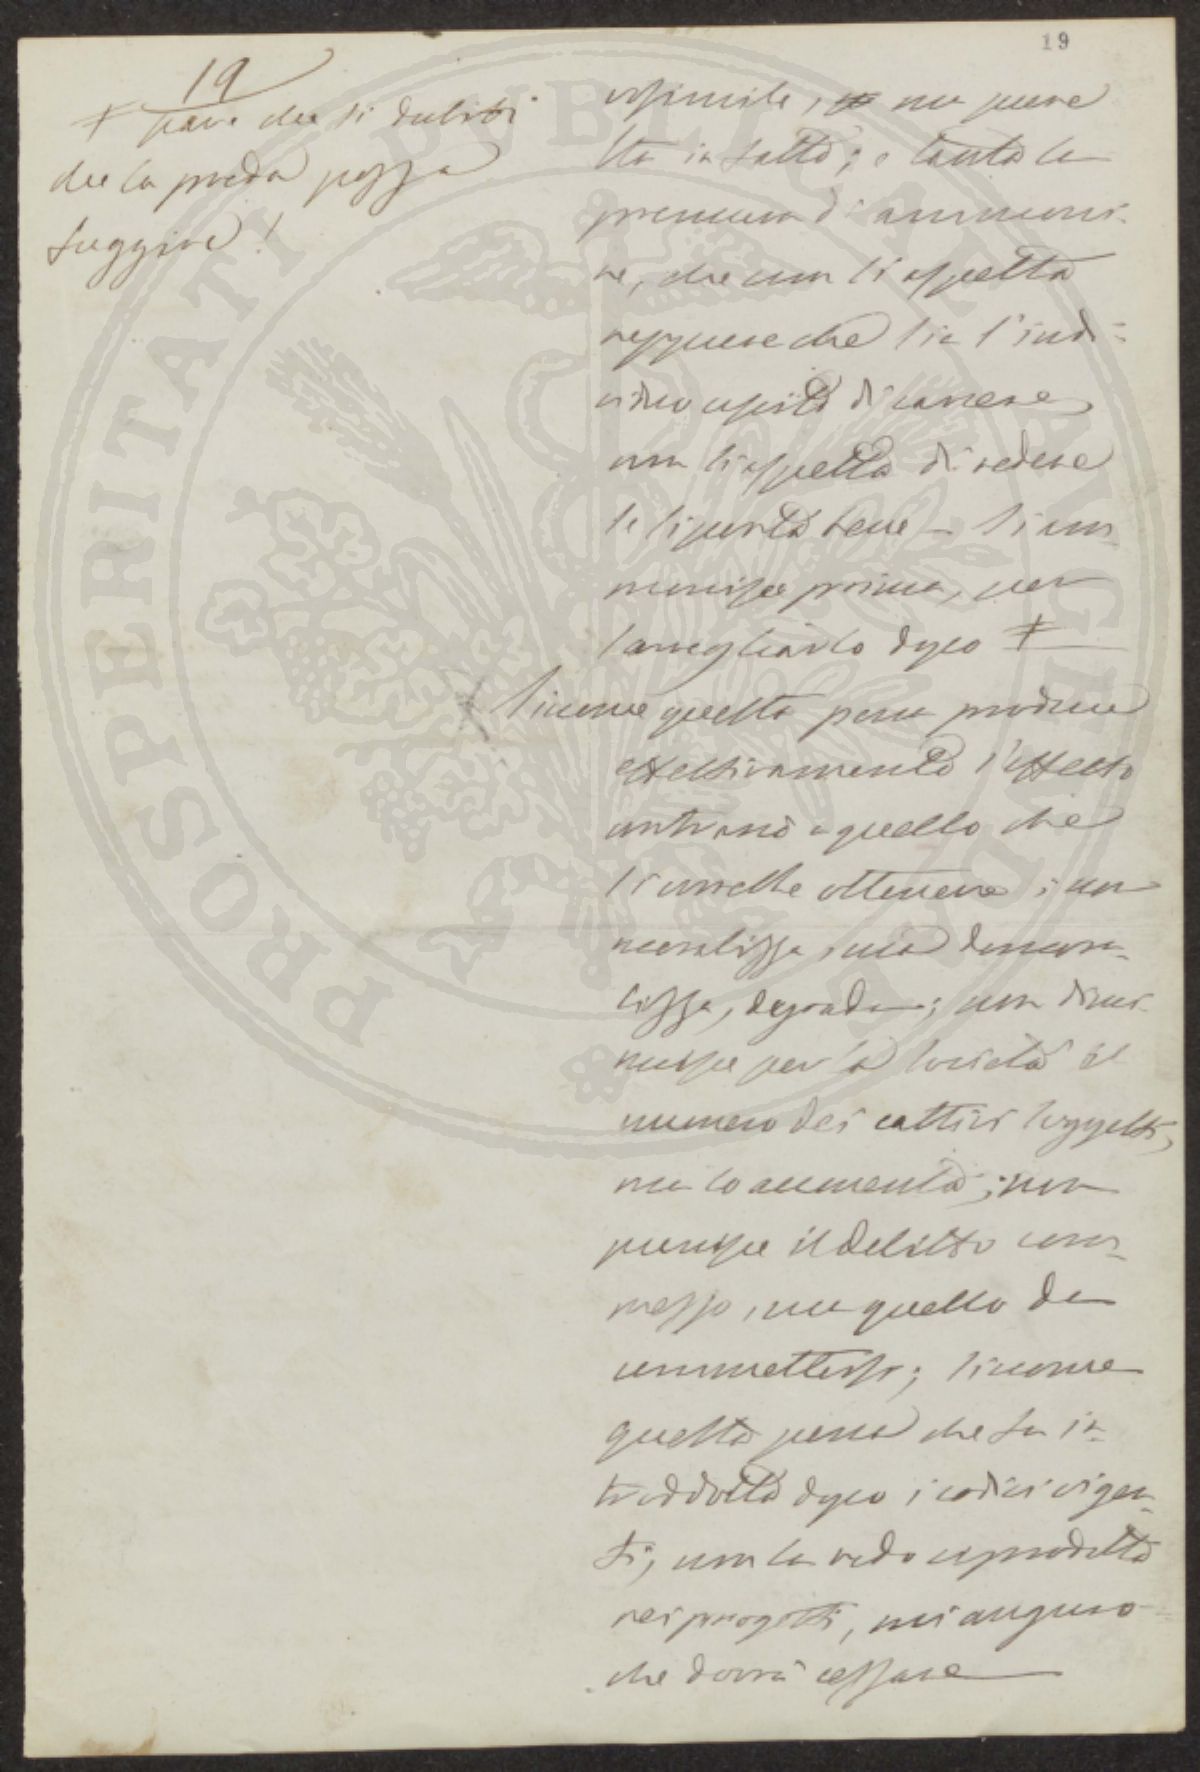 19
19
‡ pare che si dubiti
che la preda possa
fuggire!
, ma pure
sta in fatto; e tanta la
premura di ammoni-
re, che non si aspetta
neppure che sia l'indi-
viduo uscito di carcere,
non si aspetta di vedere
se si porta bene — si am-
monisce prima, per
sorvegliarlo dopo ‡
Siccome questa pena produce
effettivamente l'effetto
contrario a quello che
si vorrebbe ottenere; non
moralizza, ma demora-
lizza, degrada; non dimi-
nuisce per la società il
numero dei cattivi soggetti,
ma lo aumenta; non
punisce il delitto com-
messo, ma quello da
commettersi; siccome
questa pena che fu in-
trodotta dopo i codici vigen-
ti, non la vedo riprodotta
nei progetti, mi auguro
che dovrà cessare
PROSPERITATI PVBLICAE AVGENDAE